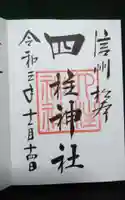 信州松本
四柱神社
令和三年十二月十四日